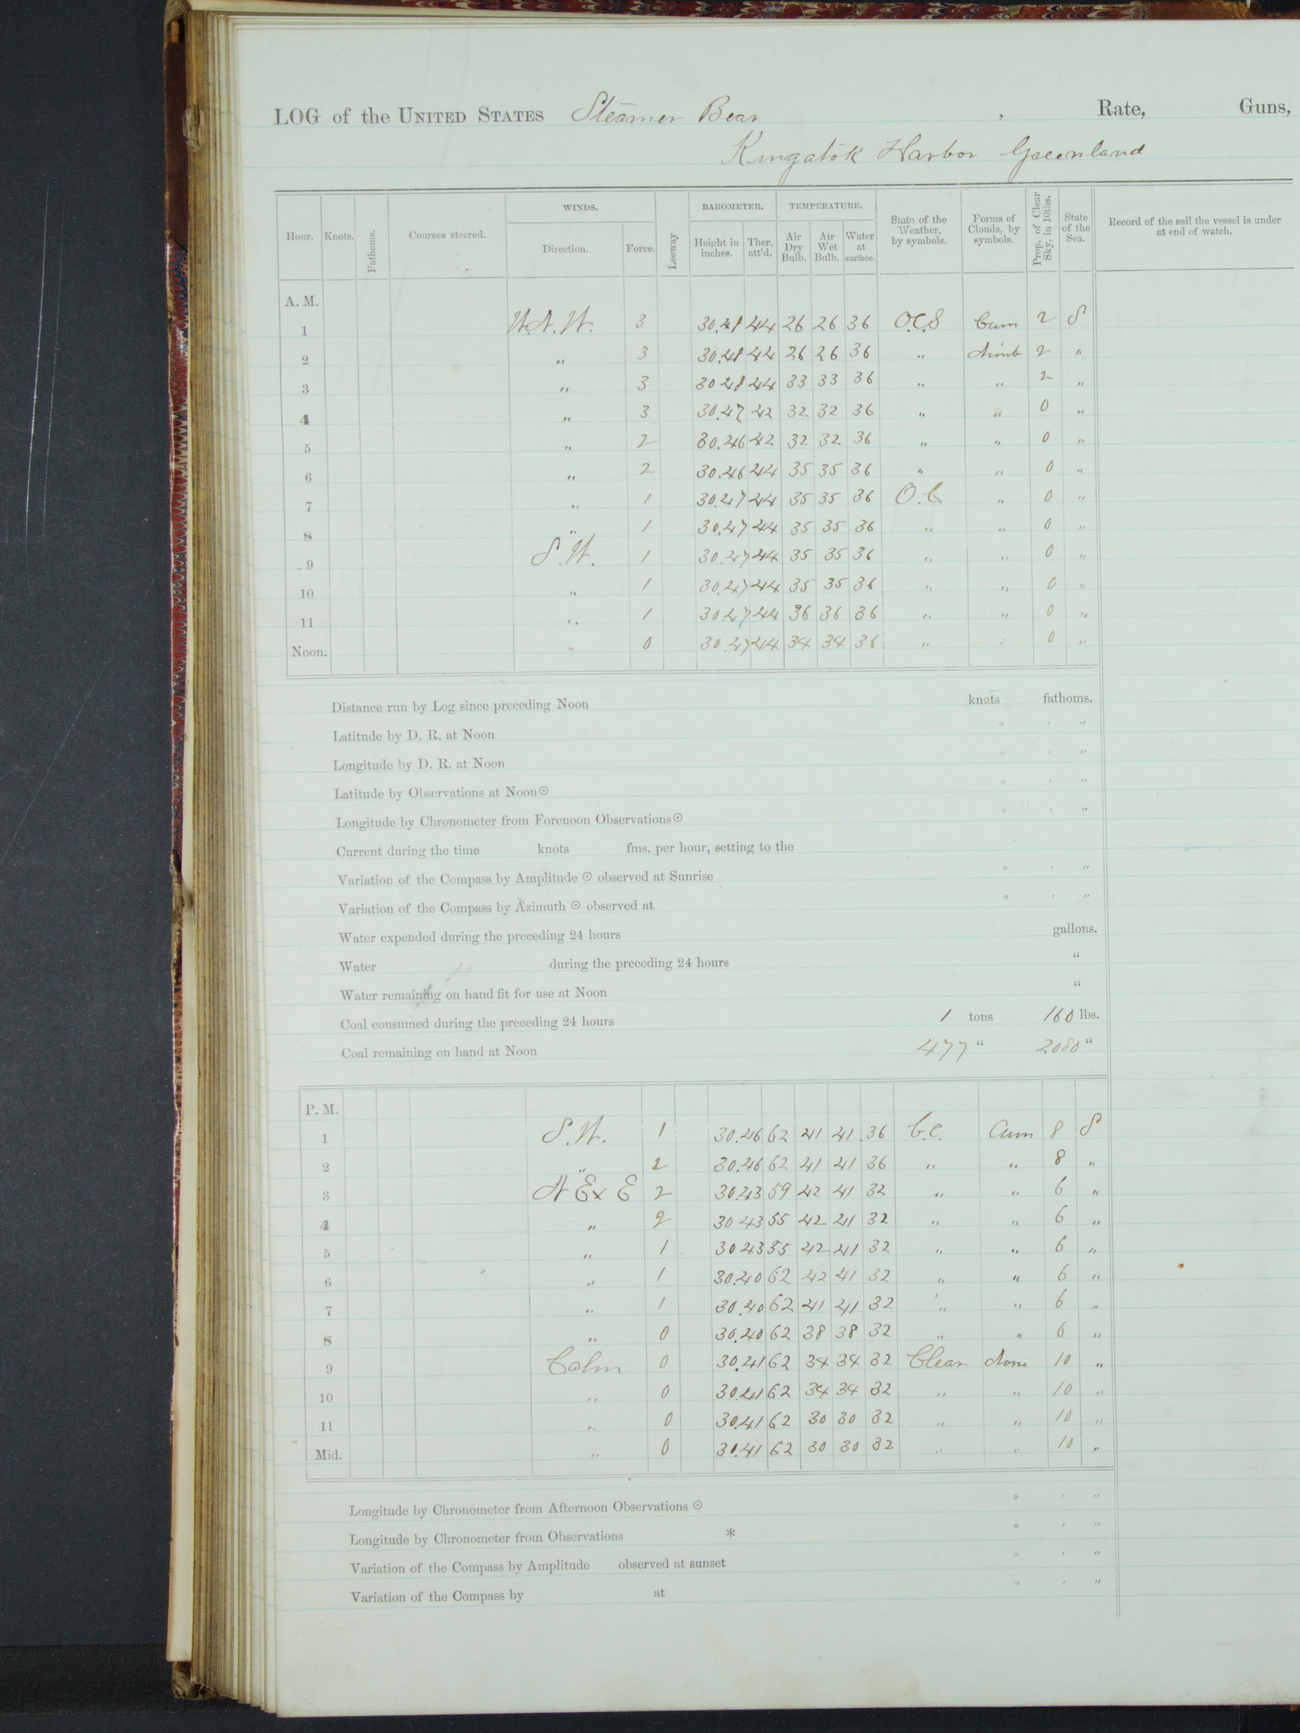 LOG of the UNITED STATES Steamer Bear , Rate, Guns,
Kingatok Harbor Greenland
Hour. Knots. Fathoms. Courses steered. WINDS. Direction. Force. Leeway BAROMETER. Height in inches. Ther. att'd. TEMPERATURE. Air Dry Bulb. Air Wet Bulb. Water at surface. State of the Weather, by symbols. Forms of Clouds, by symbols. Prop. of Clear Sky, in 10ths. State of the Sea. Record of the sail the vessel is under at end of watch.
A. M.
1 3 30.48 44 26 26 36 O.C.S Cum 2 S
2 " 3 30.48 44 26 26 36 " Nimb 2 "
3 " 3 30 48 44 33 33 36 " " 2 "
4 " 3 30.47 42 32 32 36 " " 0 "
5 " 2 30.46 42 32 32 36 " " 0 "
6 " 2 30.46 44 35 35 36 " " 0 "
7 " 1 30.47 44 35 35 36 O.C. " 0 "
8 " 1 30.47 44 35 35 36 " " 0 "
9 S.W. 1 30.47 44 35 35 36 " " 0 "
10 " 1 30.47 44 35 35 36 " " 0 "
11 " 1 30.47 44 36 36 36 " " 0 "
Noon. " 0 30.47 44 34 34 36 " " 0 "
Distance run by Log since preceding Noon knots fathoms.
Latitude by D. R. at Noon ° ' "
Longitude by D. R. at Noon ° ' "
Latitude by Observations at Noon ☉ ° ' "
Longitude by Chronometer from Forenoon Observations ☉ ° ' "
Current during the time knots fms. per hour, setting to the
Variation of the Compass by Amplitude ☉ observed at Sunrise ° ' "
Variation of the Compass by Azimuth ☉ observed at ° ' "
Water expended during the preceding 24 hours gallons.
Water during the preceding 24 hours "
Water remaining on hand fit for use at Noon "
Coal consumed during the preceding 24 hours 1 tons 160 lbs.
Coal remaining on hand at Noon 477 " 2080 "
P. M.
1 S.W. 1 30.46 62 41 41 36 b.c. Cum 8 S
2 " 2 30.46 62 41 41 36 " " 8 "
3 N Ex E 2 30.43 59 42 41 32 " " 6 "
4 " 2 30 43 55 42 41 32 " " 6 "
5 " 1 30 43 55 42 41 32 " " 6 "
6 " 1 30.40 62 42 41 32 " " 6 "
7 " 1 30.40 62 41 41 32 " " 6 "
8 " 0 30.40 62 38 38 32 " " 6 "
9 Calm 0 30.41 62 34 34 32 Clear None 10 "
10 " 0 30.41 62 34 34 32 " " 10 "
11 " 0 30.41 62 30 30 32 " " 10 "
Mid. " 0 30.41 62 30 30 32 " " 10 "
Longitude by Chronometer from Afternoon Observations ☉ ° ' "
Longitude by Chronometer from Observations * ° ' "
Variation of the Compass by Amplitude observed at sunset ° ' "
Variation of the Compass by at ° ' "